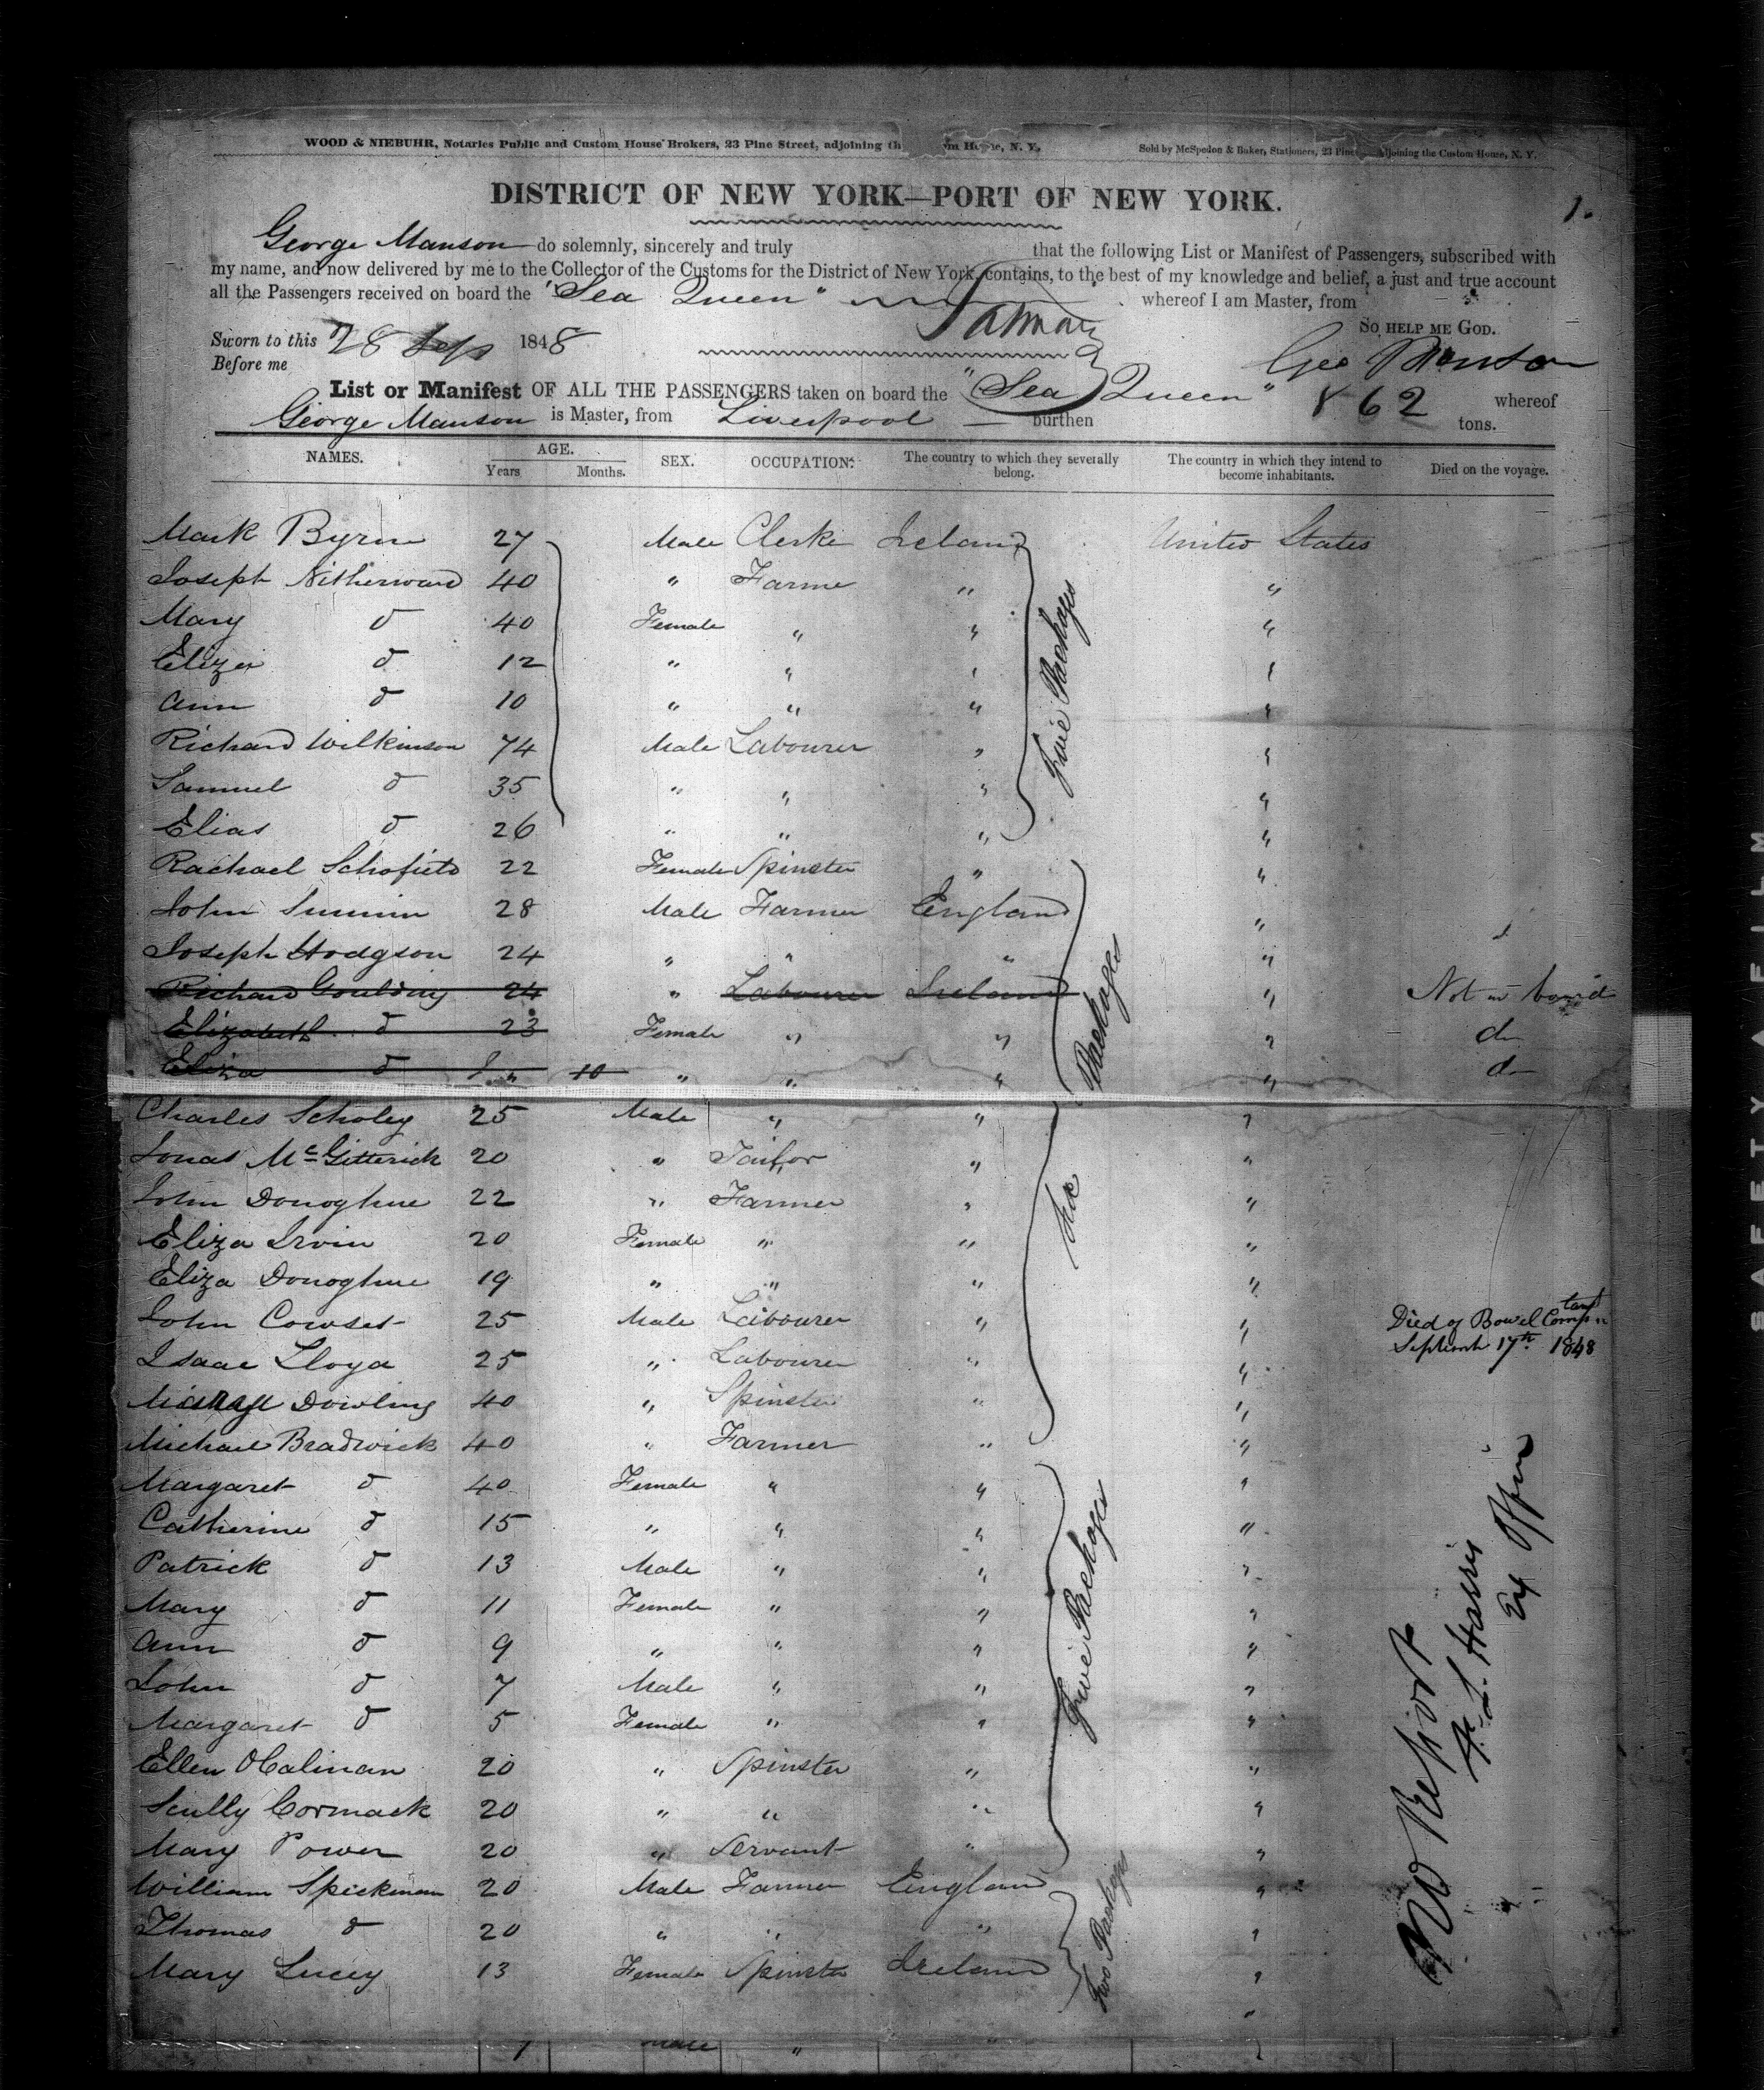 WOOD & NIEBUHR, Notaries Public and Custom House Brokers, 23 Pine Street, adjoining th m House, N. Y.
Sold by McSpedon & Baker, Stationers, 23 Pine adjoining the Custom House, N. Y.
DISTRICT OF NEW YORK—PORT OF NEW YORK.
1.
George Manson do solemnly, sincerely and truly that the following List or Manifest of Passengers, subscribed with
my name, and now delivered by me to the Collector of the Customs for the District of New York, contains, to the best of my knowledge and belief, a just and true account
all the Passengers received on board the "Sea Queen" whereof I am Master, from
Sworn to this 28 Sep 1848 SO HELP ME GOD.
Before me Geo Manson
List or Manifest OF ALL THE PASSENGERS taken on board the "Sea Queen" whereof
George Manson is Master, from Liverpool — burthen 862 tons.
NAMES. AGE. Years Months. SEX. OCCUPATION. The country to which they severally belong. The country in which they intend to become inhabitants. Died on the voyage.
Mark Byrne 27 Male Clerke Ireland United States
Joseph Nitherward 40 " Farme " "
Mary d 40 Female " " "
Eliza d 12 " " " "
Ann d 10 " " " "
Richard Wilkinson 74 Male Labourer " "
Samuel d 35 " " " "
Elias d 26 " " " "
Five Packages
Rachael Schofield 22 Female Spinster " "
John 28 Male Farmer England "
Joseph Hodgson 24 " " " "
Richard Goulding 24 " Labourer Ireland " Not on board
Elizabeth d 23 Female " " " do
Eliza d " 10 " " " " do
Charles Scholey 25 Male " " "
Jonas McGitterick 20 " Tailor " "
John Donoghue 22 " Farmer " "
Eliza Irvin 20 Female " " "
Eliza Donoghue 19 " " " "
John Cowset 25 Male Labourer " " Died of Bowel Complaint
Septemb 17th 1848
Isaac Lloyd 25 " Labourer " "
Dowling 40 " Spinster " "
Michael Bradwick 40 " Farmer " "
Packages
Margaret d 40 Female " " "
Catherine d 15 " " " "
Patrick d 13 Male " " "
Mary d 11 Female " " "
Ann d 9 " " " "
John d 7 Male " " "
Margaret d 5 Female " " "
Ellen OCalinan 20 " Spinster " "
Scully Cormack 20 " " " "
Mary Power 20 " Servant " "
Five Packages
William Spickman 20 Male Farmer England "
Thomas d 20 " " " "
Mary Lucey 13 Female Spinster Ireland "
Two Packages
No Report
Harris
Officer
male " "
SAFETY FILM